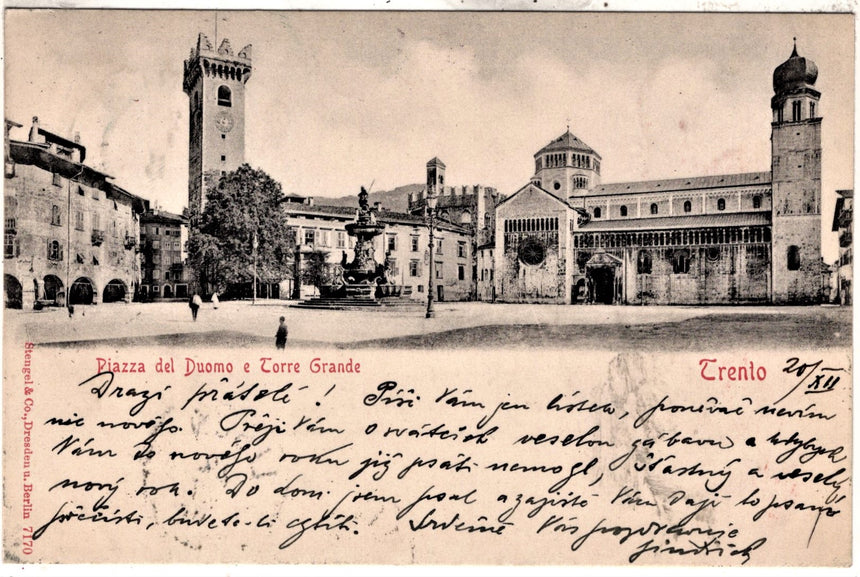 Piazza del Duomo e Torre Grande
Trento
20/XII
Drazí přátelé! Píši Vám jen lístek, poněvač nevím
nic nového. Přeji Vám o svátcích veselou zábavu a kdybych
Vám do nového roku již psáti nemohl, šťastný a veselý
nový rok. Do dom. jsem psal a zajisté Vám dají to psaní
přečísti, budete-li chtíti. Srdečně Vás pozdravuje
Jindřich
Stengel & Co., Dresden u. Berlin 7170